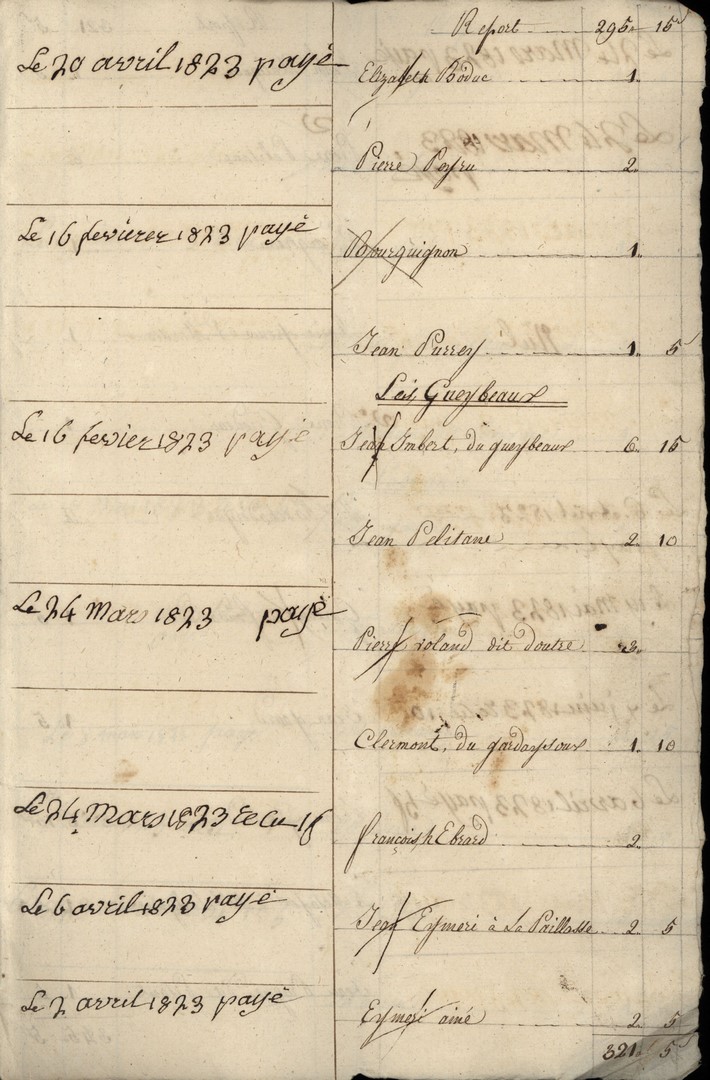 Report 295 15
Le 20 avril 1823 payé
Elizabeth Boduc 1
Pierre Peyru 2
Le 16 fevierer 1823 payé
Bourguignon 1
Jean Purrey 1 5
Les Gueybeaux
Le 16 fevier 1823 payé
Jean Imbert, du gueybeaux 6 15
Jean Pelitane 2 10
Le 24 Mars 1823 payé
Pierre roland dit doutre 3
Clermont, du gardaysoux 1 10
Le 24 Mars 1823 Recu 1f
françois h Ebrard 2
Le 6 avril 1823 payé
Jean Eymeri à La Paillasse 2 5
Le 2 avril 1823 payé
Eymeri ainé 2 5
321 5